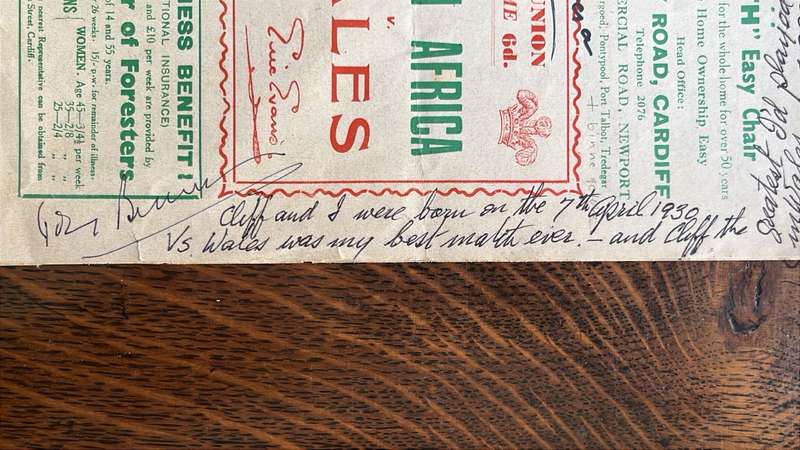 Cliff and I were born on the 7th April 1930
Vs. Wales was my best match ever. – and Cliff the
TH" Easy Chair
for the whole home for over 50 years
Home Ownership Easy
Head Office:
Y ROAD, CARDIFF
Telephone 2076
ERCIAL ROAD, NEWPORT
rgoed, Pontypool, Port Talbot, Tredegar
UNION
ME 6d.
AFRICA
v.
ALES
Eric Evans
NESS BENEFIT!
TIONAL INSURANCE)
and £10 per week are provided by
r of Foresters
of 14 and 55 years.
26 weeks. 15/- p.w. for remainder of illness.
WOMEN. Age 45—3/4½ per week
35—2/8 „ „
25—2/4 „ „
nearest Representative can be obtained from
Street, Cardiff.